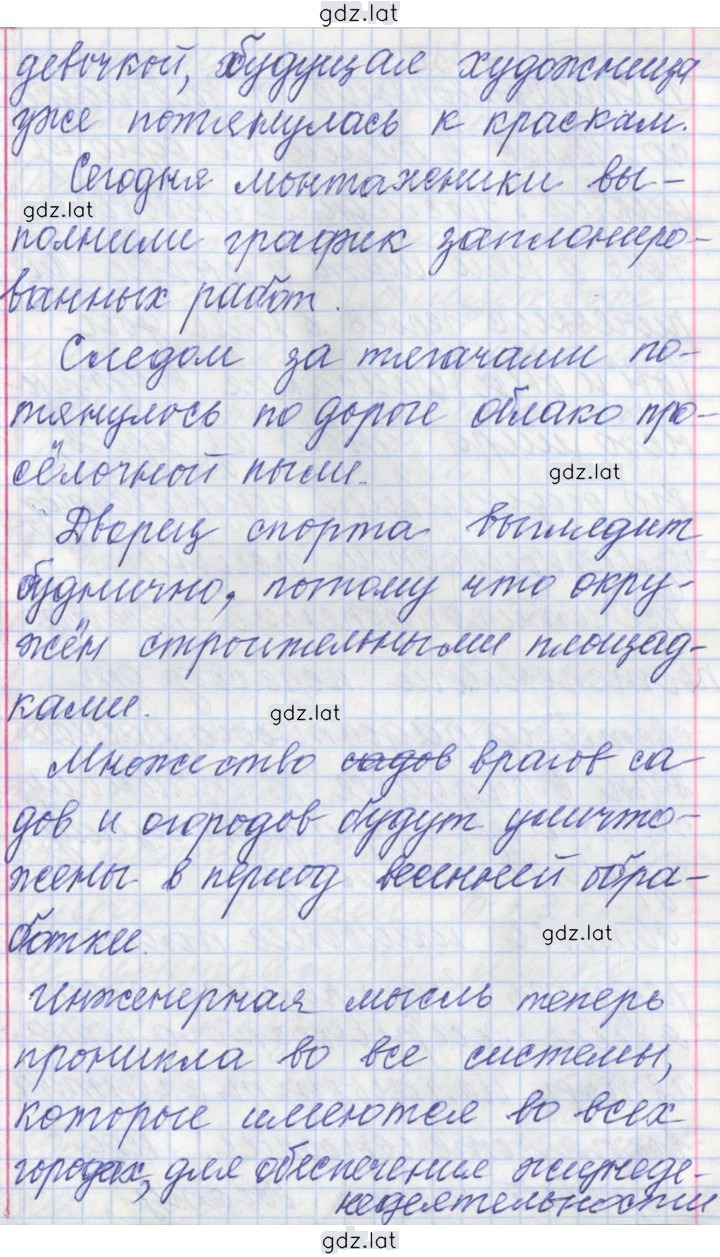 gdz.lat
девочкой, будущая художница
уже потянулась к краскам.
Сегодня монтажники вы-
gdz.lat
полнили график заплониро-
ванных работ.
Следом за тягачами по-
тянулось по дороге облако про-
сёлочной пыли.
gdz.lat
Дворец спорта выглядит
буднично, потому что окру-
жён строительными площад-
ками.
gdz.lat
Множество садов врагов са-
дов и огородов будут уничто-
жены в период весенней обра-
ботки.
gdz.lat
Инженерная мысль теперь
проникла во все системы,
которые имеются во всех
городах, для обеспечения жизнеде-
неделятельности
gdz.lat